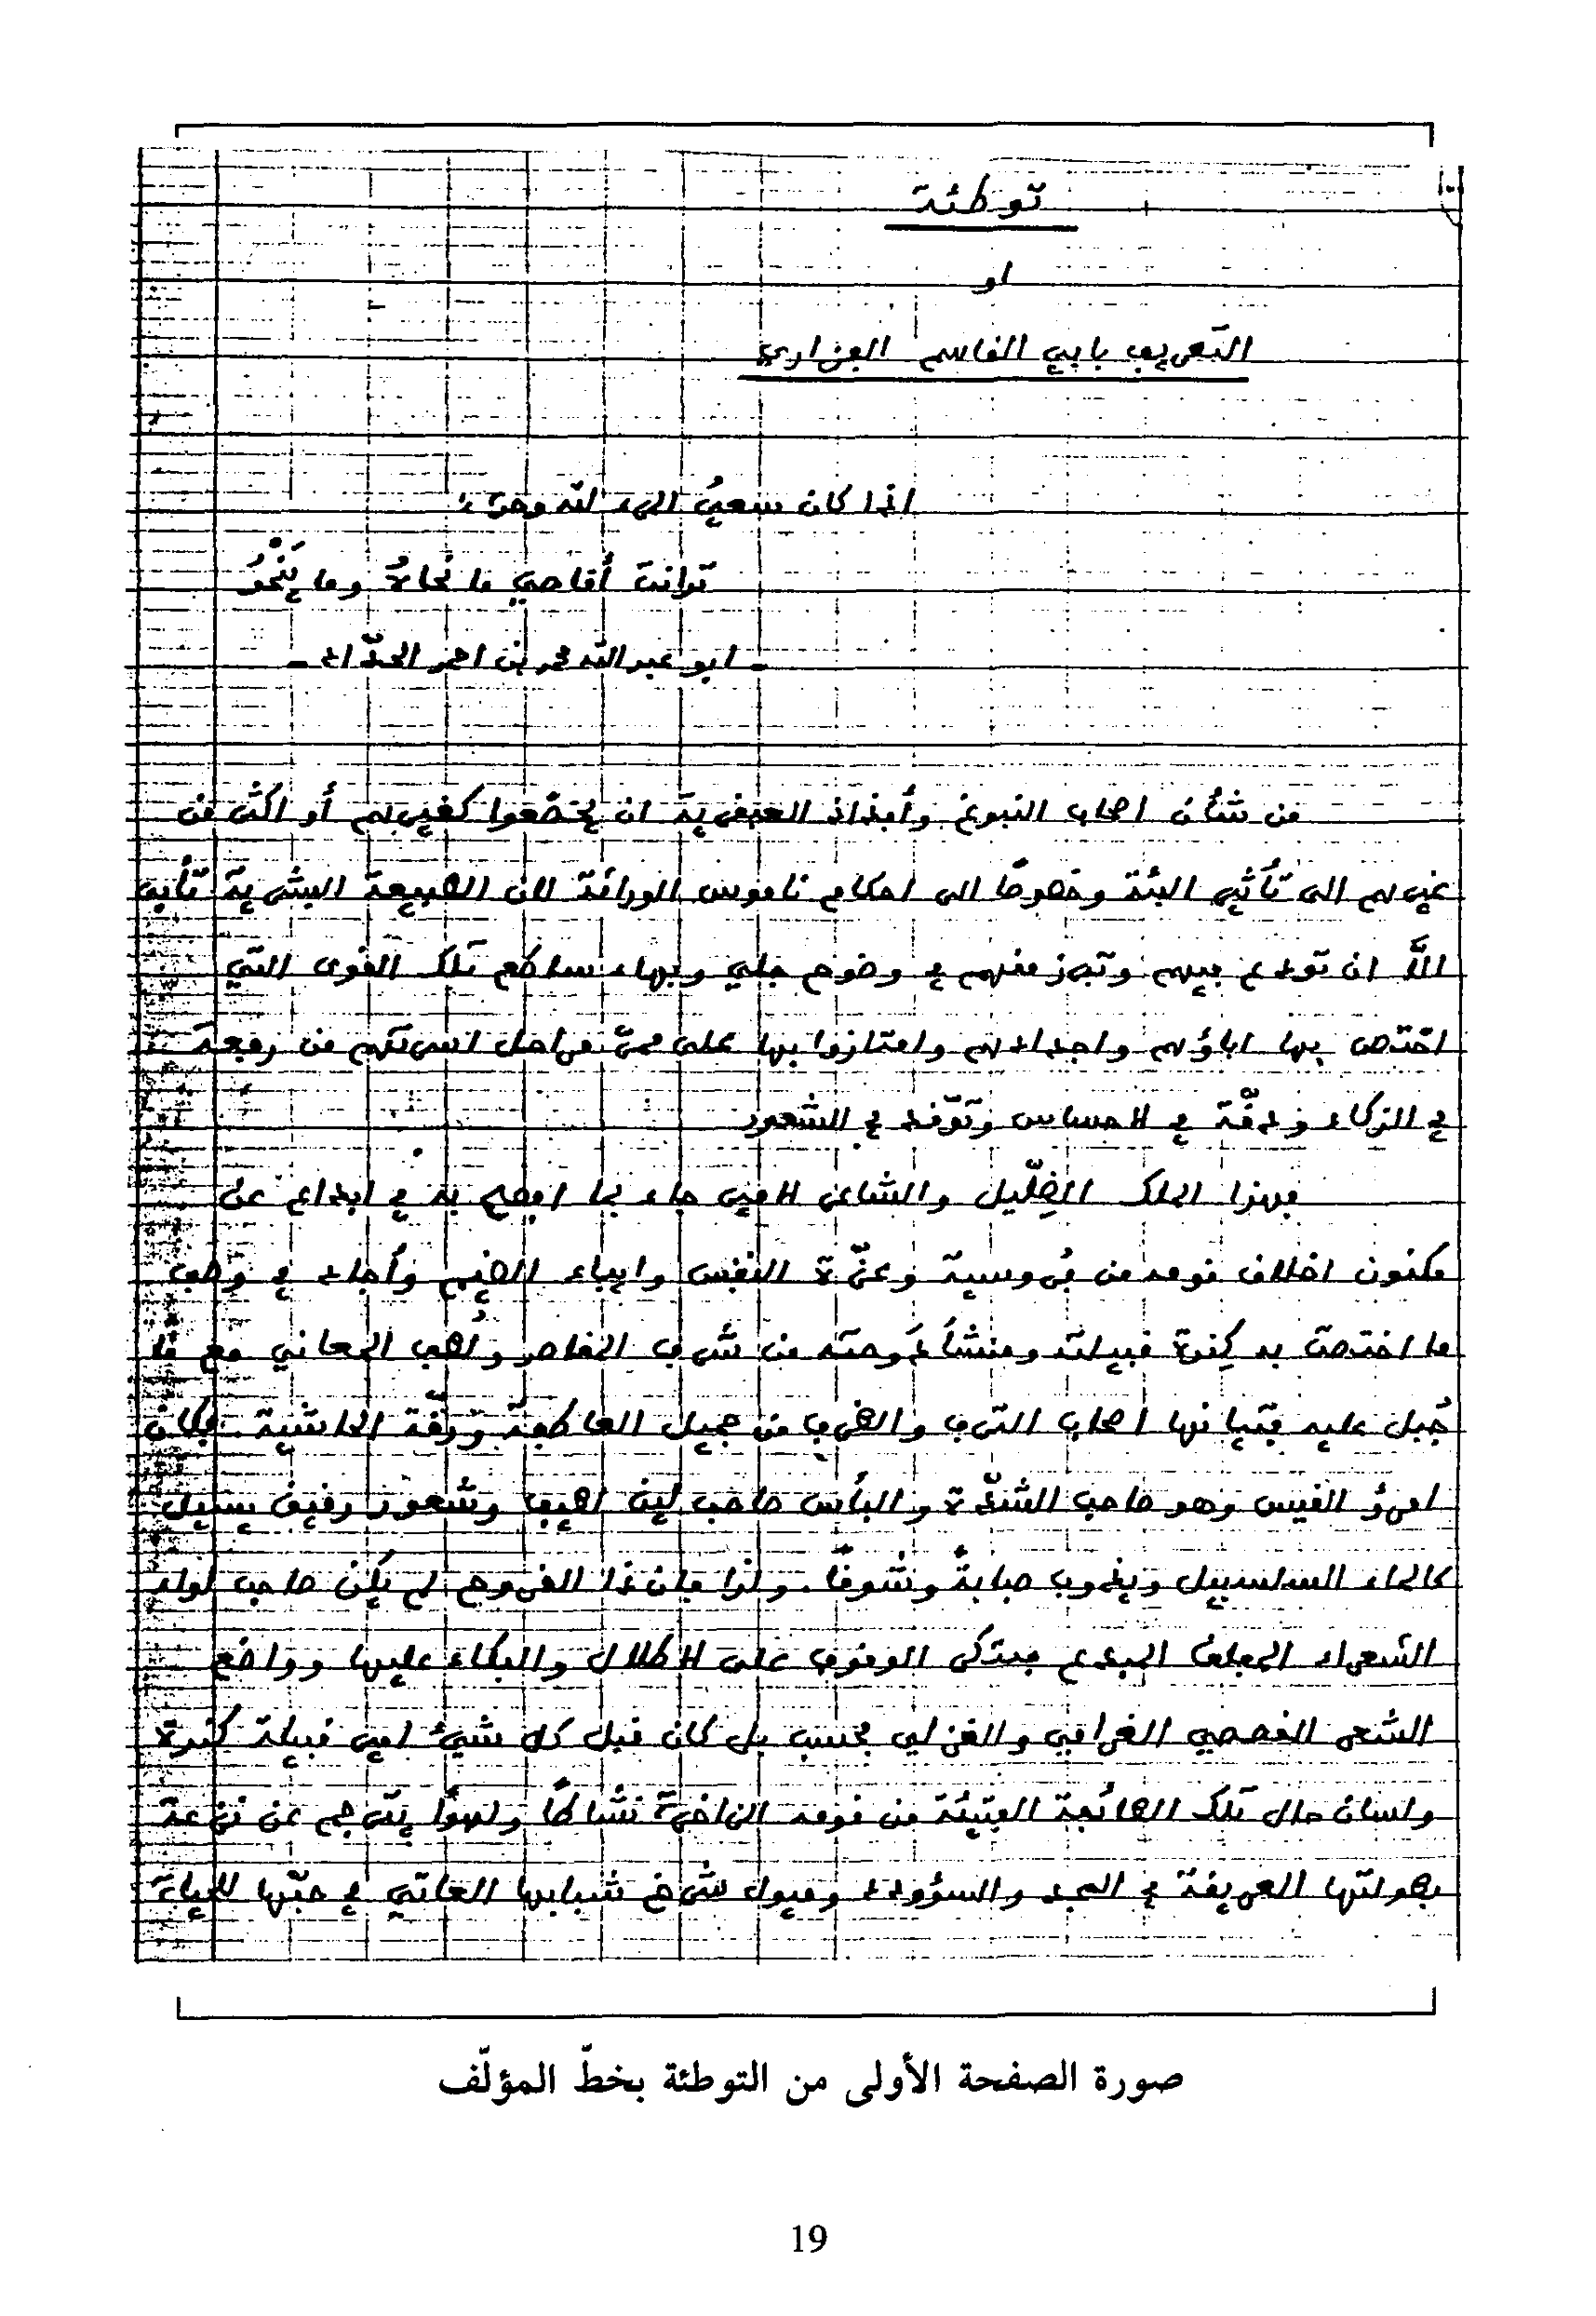 توطئة
او
التعريف بابي القاسم الفزاري
اذا كان سعيُ المرء لله وحدَه
تدانت أقاصي ما نحاهُ وما يَنْحُو
- ابو عبد الله محمد بن احمد الحدّاد -
من شأن اصحاب النبوغ وأفذاذ العبقرية ان يخضعوا كغيرهم أو اكثر من
غيرهم الى تأثير البئة وخصوصًا الى احكام ناموس الوراثة لان الطبيعة البشرية تأبى
الاَّ ان تودع فيهم وتبرز منهم في وضوح جلي وبهاء ساطع تلك القوى التي
اختص بها اباؤهم واجدادهم وامتازوا بها على ممرّ مراحل اسرتهم من رفعة
في الذكاء ودقّة في الاحساس وتوقد في الشعور
فهذا الملك الضِلّيل والشاعر الامير جاء بما افصح به في ابداع عن
مكنون اخلاق قومه من فُروسية وعزّة النفس واباء الضيم وأجاد في وصف
ما اختصت به كِندة قبيلته ومنشأ دَوحته من شرف المقاصد ولُطف المعاني مع ما
جُبل عليه فتيانها اصحاب الترف والظرف من جميل العاطفة ورقّة الحاشية. فكان
امرؤ القيس وهو صاحب الشدّة والبأس صاحب لين لطيف وشعور رقيق يسيل
كالماء السلسبيل ويذوب صبابةً وشوقًا. ولذا فان ذا القروح لم يكن صاحب لواء
الشعراء المفلق المبدع مبتكر الوقوف على الاطلال والبكاء عليها وواضع
الشعر القصصي الغرامي والغزلي فحسب بل كان قبل كل شيئ امير قبيلة كندة
ولسان حال تلك الطائفة الفتيّة من قومه الزاخرة نشاطا ولهوًا يترجم عن نزعة
بطولتها العريقة في المجد والسؤودد وميول شرخ شبابها العاتي في حبّها للحياة
صورة الصفحة الأولى من التوطئة بخطّ المؤلّف
19